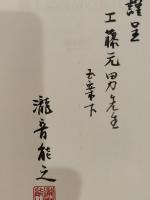 謹呈
工藤元男先生
玉案下
瀧音能之